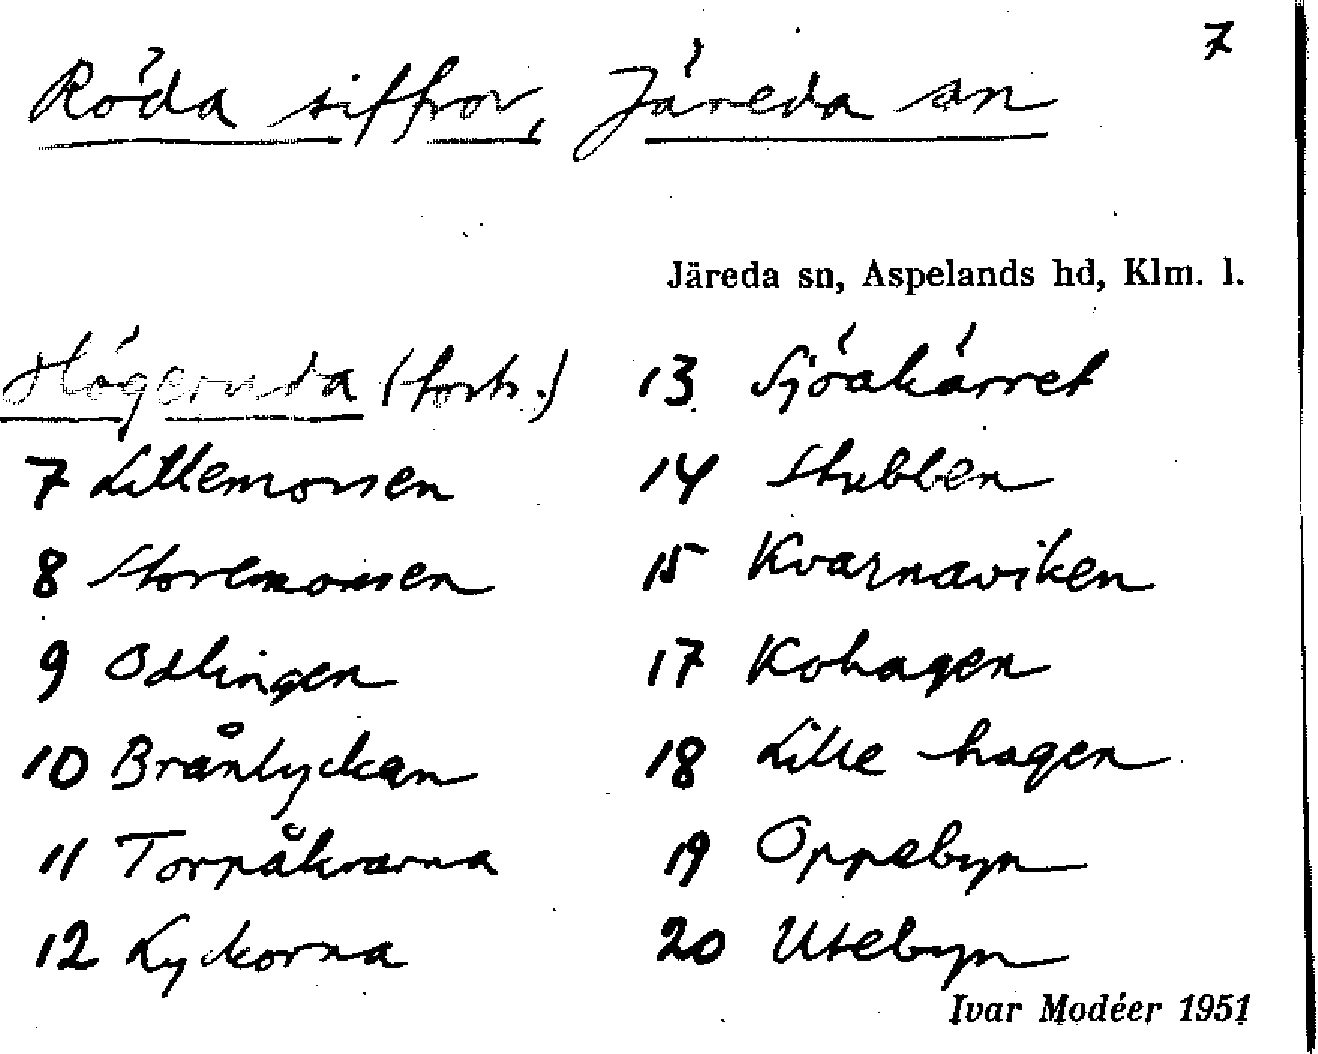 7
Röda siffror, Järeda sn
Järeda sn, Aspelands hd, Klm. l.
Högeruda (forts.)
7 Lillemossen
8 Storemossen
9 Odlingen
10 Brånlyckan
11 Torpåkrarna
12 Lyckorna
13 Sjöakärret
14 Stubben
15 Kvarnaviken
17 Kohagen
18 Lille hagen
19 Oppebyn
20 Utebyn
Ivar Modéer 1951